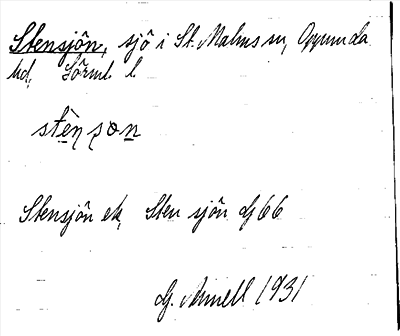 Stensjön, sjö i St. Malms sn, Oppunda
hd, Sörml. l.
Stensjön ek, Sten sjön Gf 66
G. Arnell 1931